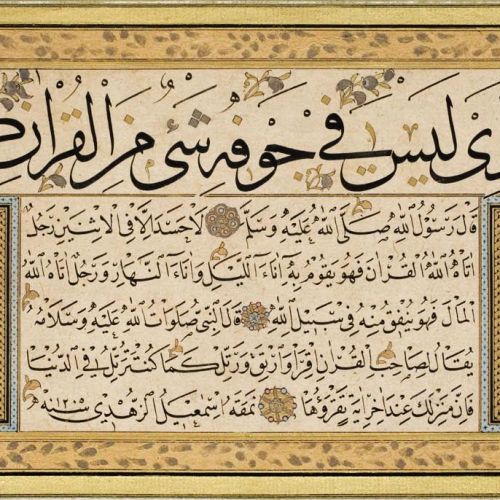 ذى ليس فى جوفه شئ من القرآن ك
قال رسول الله صلى الله عليه وسلم لا حسد الا فى الاثنين رجل
اتاه الله القرآن فهو يقوم به اناء الليل واناء النهار ورجل اتاه الله
المال فهو ينفق منه فى سبيل الله قال النبى صلوات الله عليه وسلامه
يقال لصاحب القرآن اقرا وارتق ورتل كما كنت ترتل فى الدنيا
فان منزلك عند اخر اية تقرؤها نمقه اسمعيل الزهدى سنه ١٢٠٥